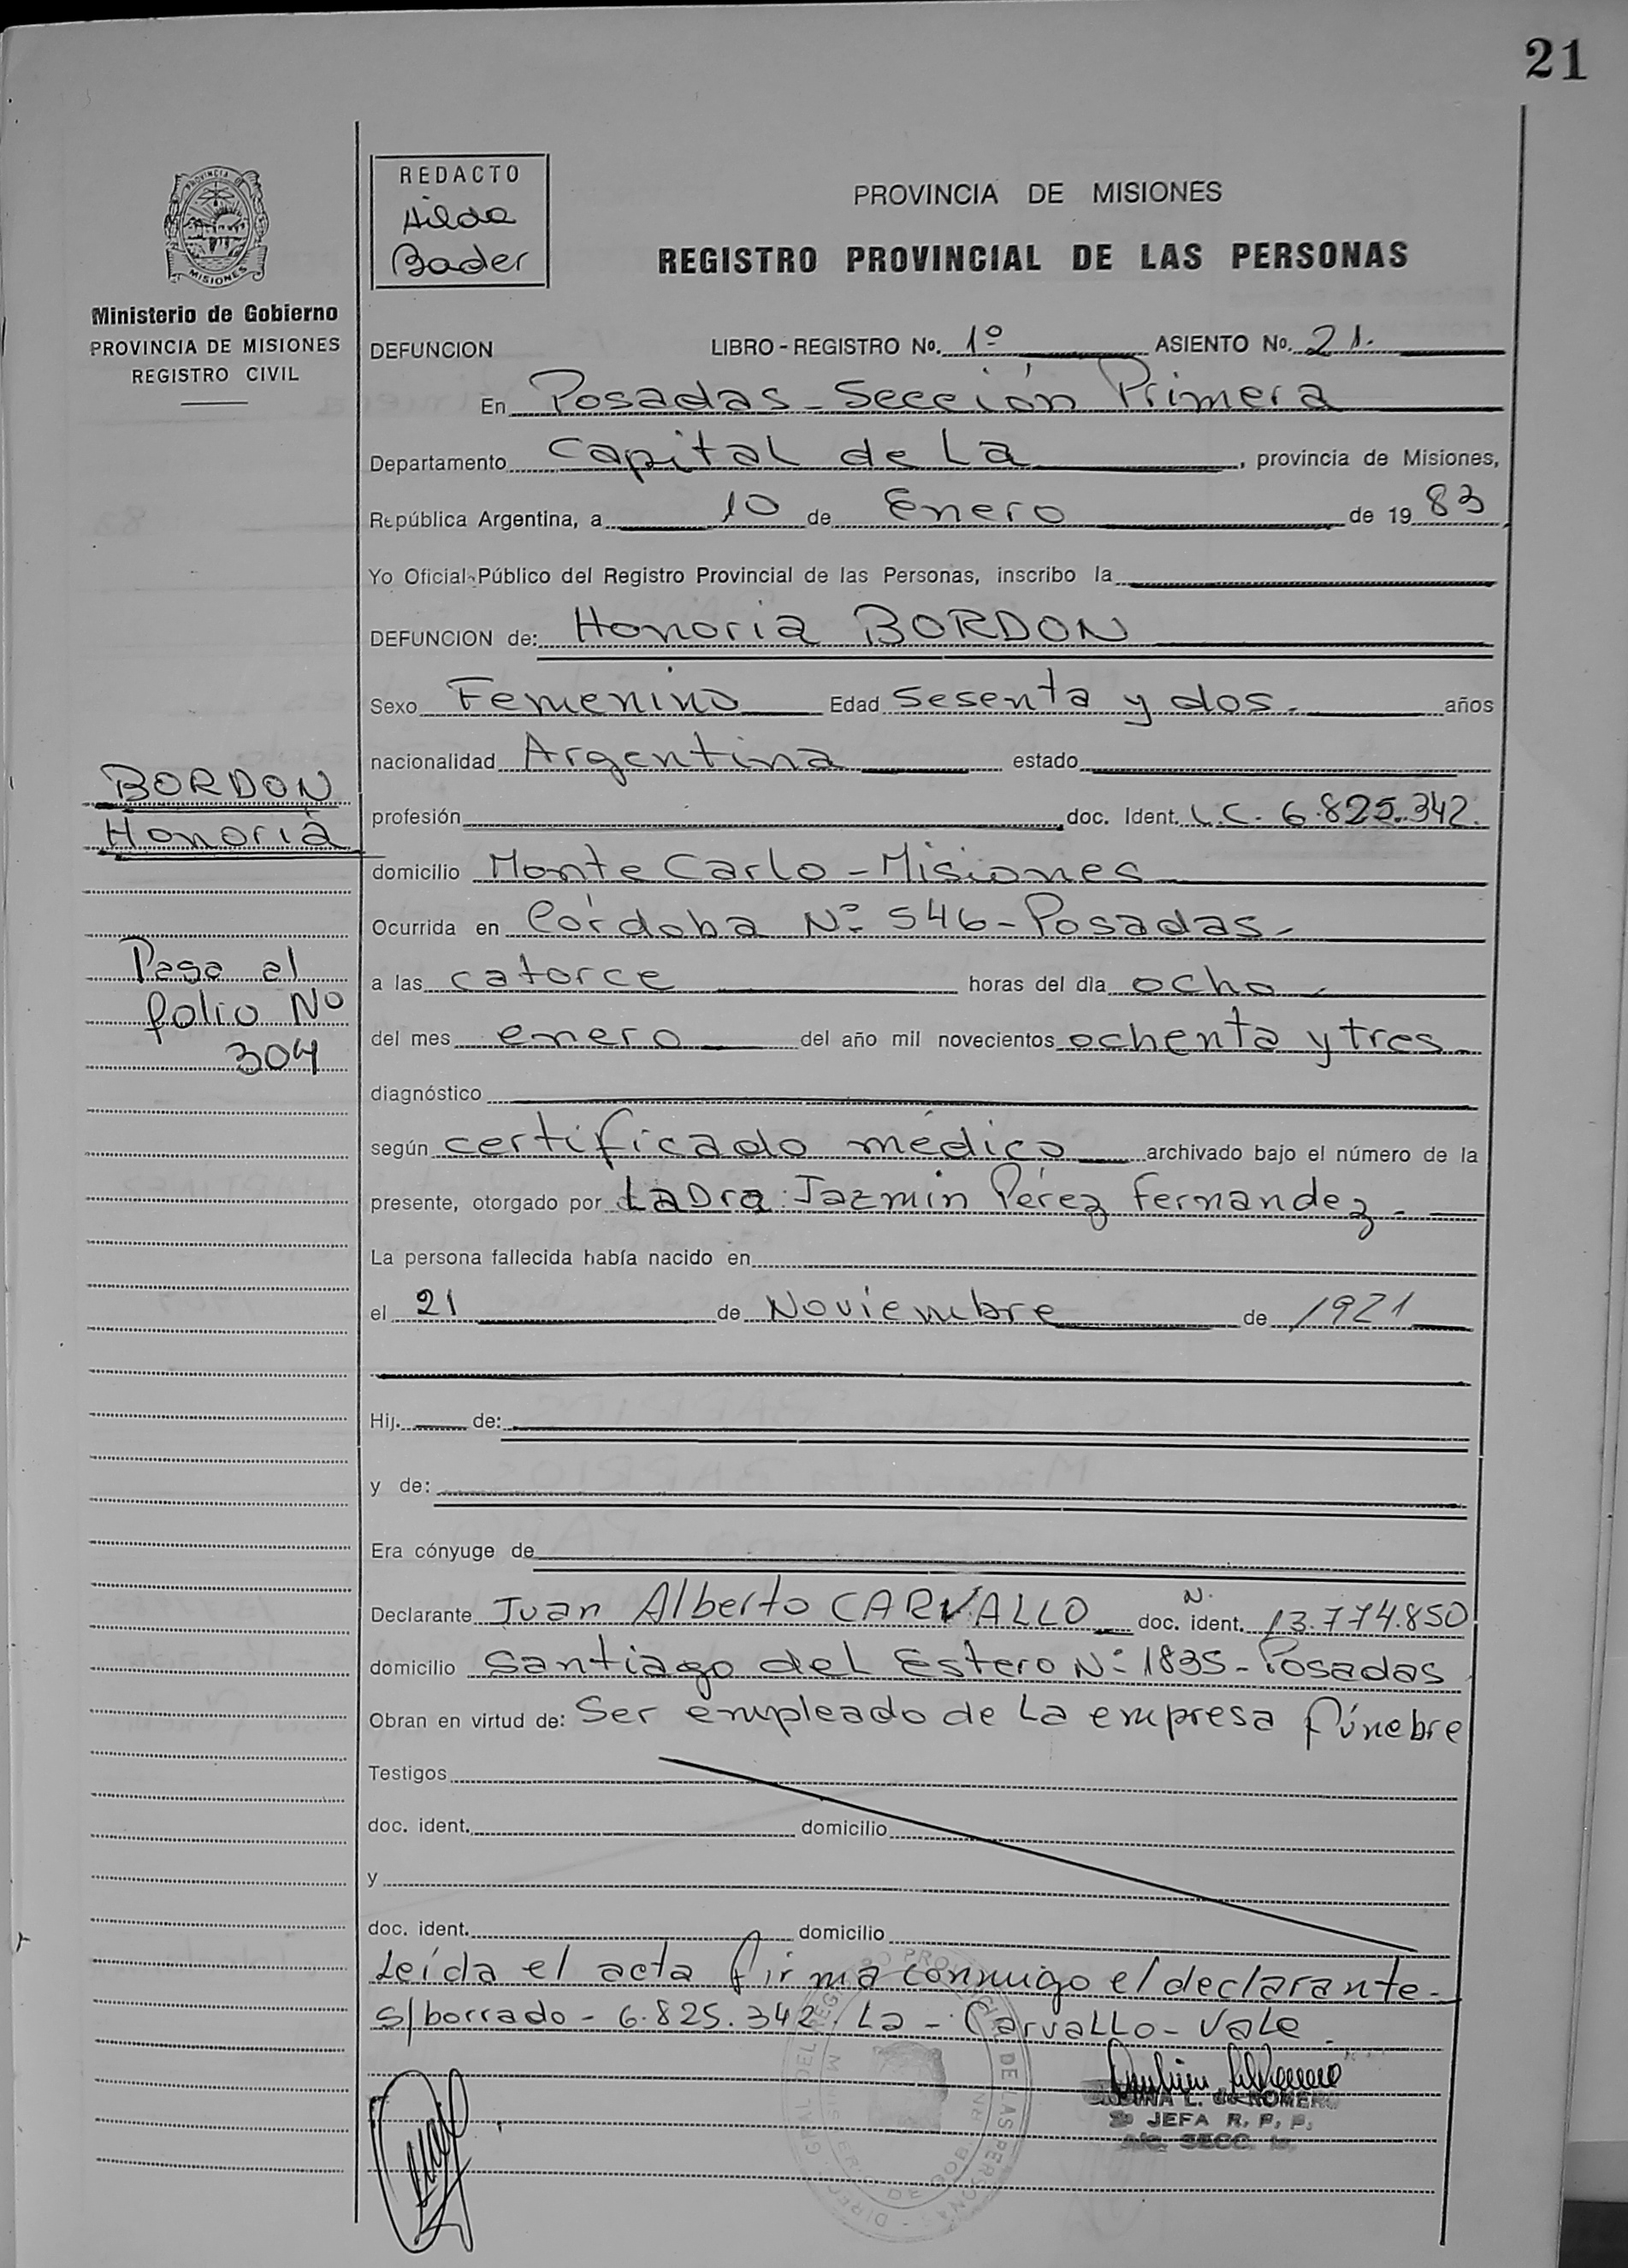 21
PROVINCIA DE
MISIONES
Ministerio de Gobierno
PROVINCIA DE MISIONES
REGISTRO CIVIL
REDACTO
Hilda
Bader
PROVINCIA DE MISIONES
REGISTRO PROVINCIAL DE LAS PERSONAS
DEFUNCION LIBRO - REGISTRO No. 1º ASIENTO No. 21.
En Posadas - Sección Primera
Departamento Capital de La, provincia de Misiones,
República Argentina, a 10 de Enero de 19 83
Yo Oficial Público del Registro Provincial de las Personas, inscribo la
DEFUNCION de: Honoria BORDON
Sexo Femenino Edad Sesenta y dos.- años
nacionalidad Argentina estado
BORDON
Honoria
profesión doc. Ident. L.C. 6.825.342.
domicilio Monte Carlo - Misiones
Ocurrida en Córdoba Nº 546 - Posadas.-
Pasa al
folio Nº
304
a las catorce horas del día ocho.-
del mes enero del año mil novecientos ochenta y tres
diagnóstico
según certificado médico archivado bajo el número de la
presente, otorgado por La Dra: Jazmin Pérez Fernandez.-
La persona fallecida había nacido en
el 21 de Noviembre de 1921
Hij. de:
y de:
Era cónyuge de
Declarante Juan Alberto CARVALLO doc. ident. N. 13.774.850
domicilio Santiago del Estero Nº 1835 - Posadas
Obran en virtud de: Ser empleado de La empresa fúnebre
Testigos
doc. ident. domicilio
y
doc. ident. domicilio
Leída el acta firma conmigo el declarante-
s/borrado - 6.825.342. La - Carvallo - Vale.
L. de ROMERO
JEFA R. P. P.
SECC. 1a.